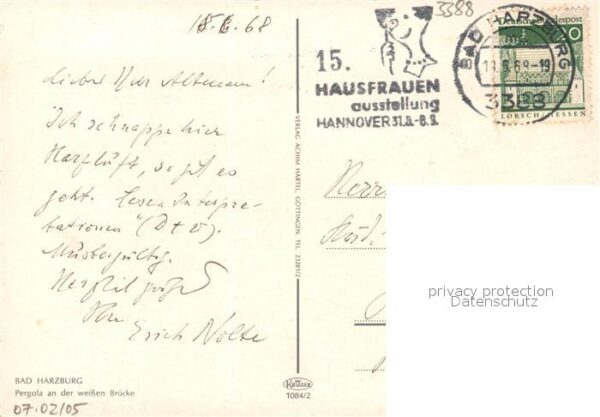 3388
15.6.68
Lieber Herr Altmann!
Ich schnappe hier
Harzluft, so gut es
geht. Lesen Interpre-
tationen" (D + D).
Herzlich grüßt
Ihr
Erich Nolte
BAD HARZBURG
Pergola an der weißen Brücke
07.02/05
VERLAG ACHIM HARTEL, GÖTTINGEN, TEL. 23281/2
KRÜGER
1084/2
15.
HAUSFRAUEN
ausstellung
HANNOVER 31.8.-8.9.
BAD HARZBURG
3388
Deutsche Bundespost
20
LORSCH/HESSEN
Herrn
privacy protection
Datenschutz